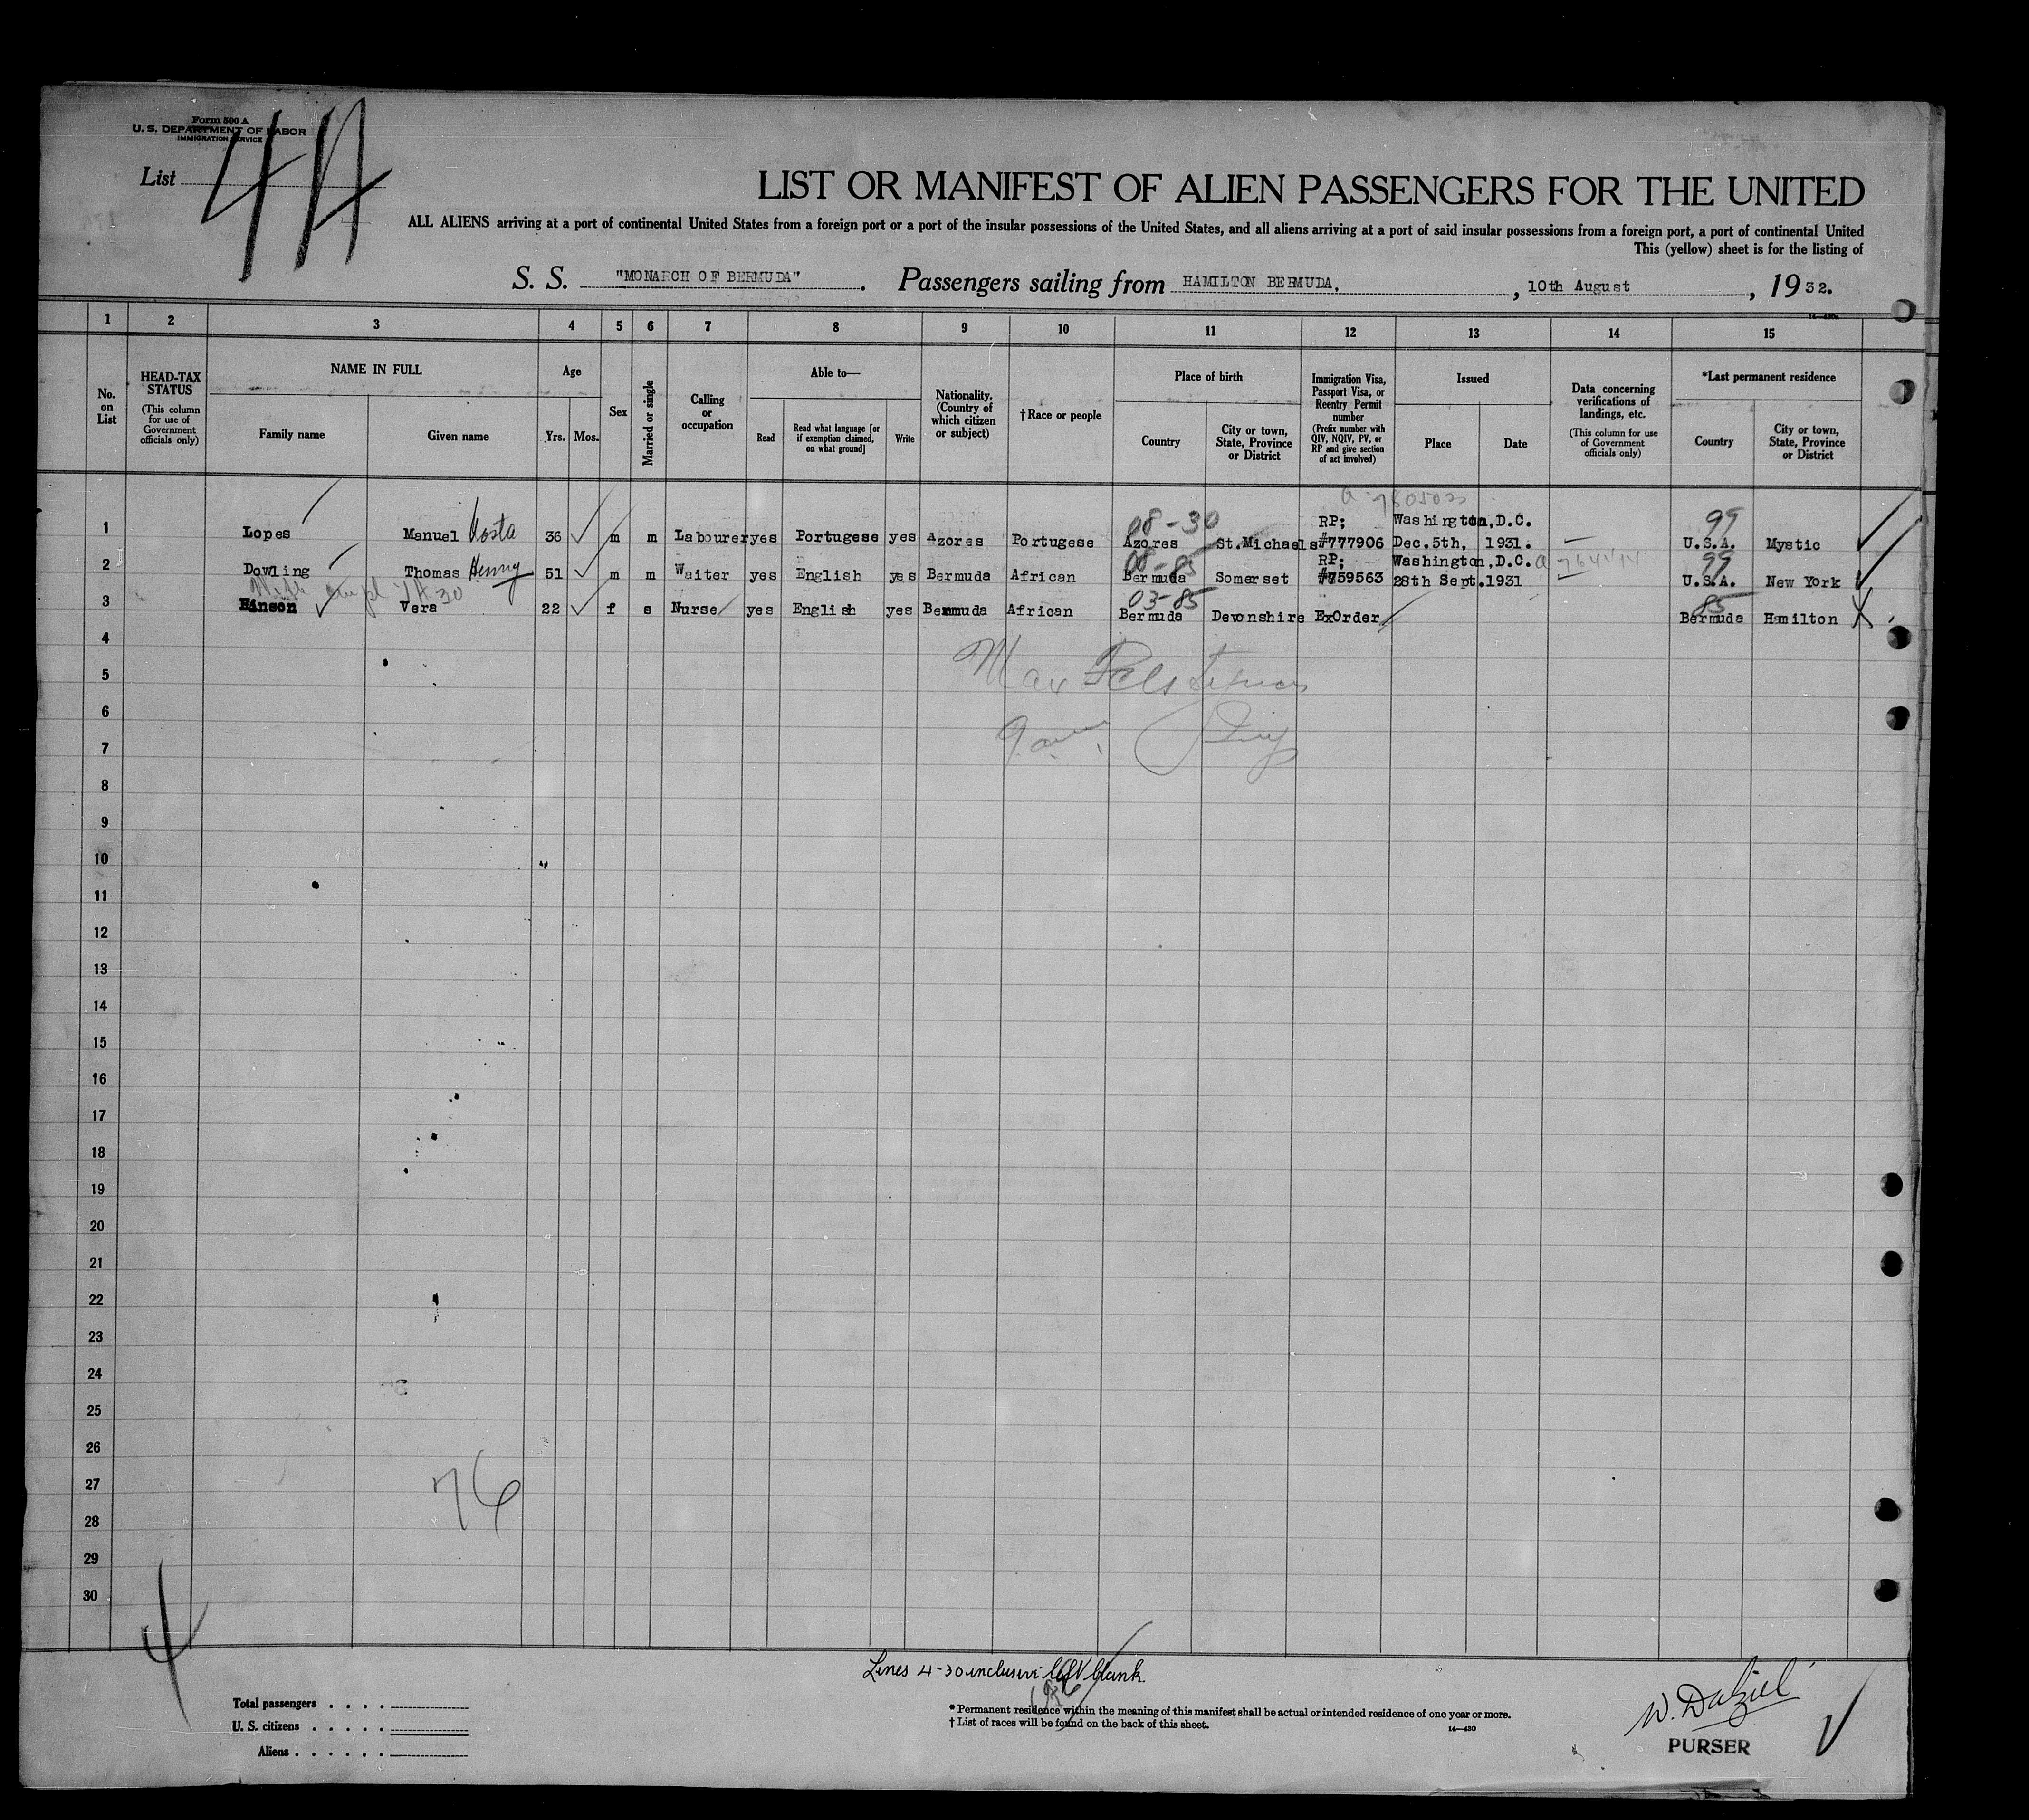 Form 500 A
U. S. DEPARTMENT OF LABOR
IMMIGRATION SERVICE
List 4A
LIST OR MANIFEST OF ALIEN PASSENGERS FOR THE UNITED
ALL ALIENS arriving at a port of continental United States from a foreign port or a port of the insular possessions of the United States, and all aliens arriving at a port of said insular possessions from a foreign port, a port of continental United
This (yellow) sheet is for the listing of
S. S. "MONARCH OF BERMUDA". Passengers sailing from HAMILTON BERMUDA, , 10th August , 1932.
14—430
1 2 3 4 5 6 7 8 9 10 11 12 13 14 15
No. on List
HEAD-TAX STATUS (This column for use of Government officials only)
NAME IN FULL
Family name Given name
Age
Yrs. Mos.
Sex
Married or single
Calling or occupation
Able to—
Read Read what language [or if exemption claimed, on what ground] Write
Nationality. (Country of which citizen or subject)
†Race or people
Place of birth
Country City or town, State, Province or District
Immigration Visa, Passport Visa, or Reentry Permit number (Prefix number with QIV, NQIV, PV, or RP and give section of act involved)
Issued
Place Date
Data concerning verifications of landings, etc. (This column for use of Government officials only)
*Last permanent residence
Country City or town, State, Province or District
08-30 RP; Washington, D.C. 99
1 Lopes Manuel Costa 36 m m Labourer yes Portugese yes Azores Portugese Azores St.Michaels #777906 Dec.5th, 1931. U.S.A. Mystic
08-85 RP; Washington, D.C. 99
2 Dowling Thomas Henny 51 m m Waiter yes English yes Bermuda African Bermuda Somerset #759563 28th Sept.1931 U.S.A. New York
03-85 85
3 Hinson Vera 22 f s Nurse yes English yes Bermuda African Bermuda Devonshire ExOrder Bermuda Hamilton
4
5
6
7
8
9
10
11
12
13
14
15
16
17
18
19
20
21
22
23
24
25
26
27
28
29
30
76
Lines 4-30 inclusive left blank.
Total passengers . . . .
U. S. citizens . . . . .
Aliens . . . . . .
* Permanent residence within the meaning of this manifest shall be actual or intended residence of one year or more.
† List of races will be found on the back of this sheet.
14—430
W. Dalziel
PURSER